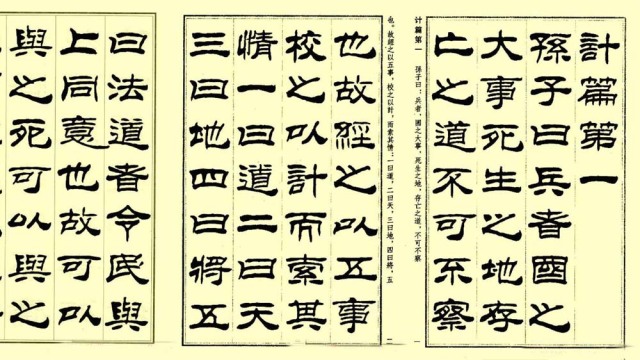 計篇第一
孫子曰兵者國之
大事死生之地存
亡之道不可不察
计篇第一　孫子曰：兵者，國之大事，死生之地，存亡之道，不可不察
一
也。故經之以五事，校之以計，而索其情：一曰道，二曰天，三曰地，四曰將，五
二
也故經之以五事
校之以計而索其
情一曰道二曰天
三曰地四曰將五
曰法道者令民與
上同意也故可以
與之死可以與之